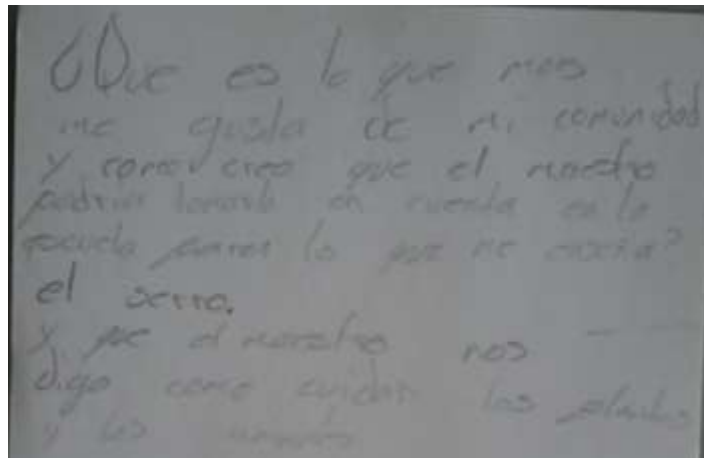 ¿Que es lo que mas
me gusta de mi comunidad
y como creo que el maestro
podria tomarlo en cuenta en la
escuela para lo que me enseña?
el serro.
y que el maestro nos
diga como cuidar las plantas
y los